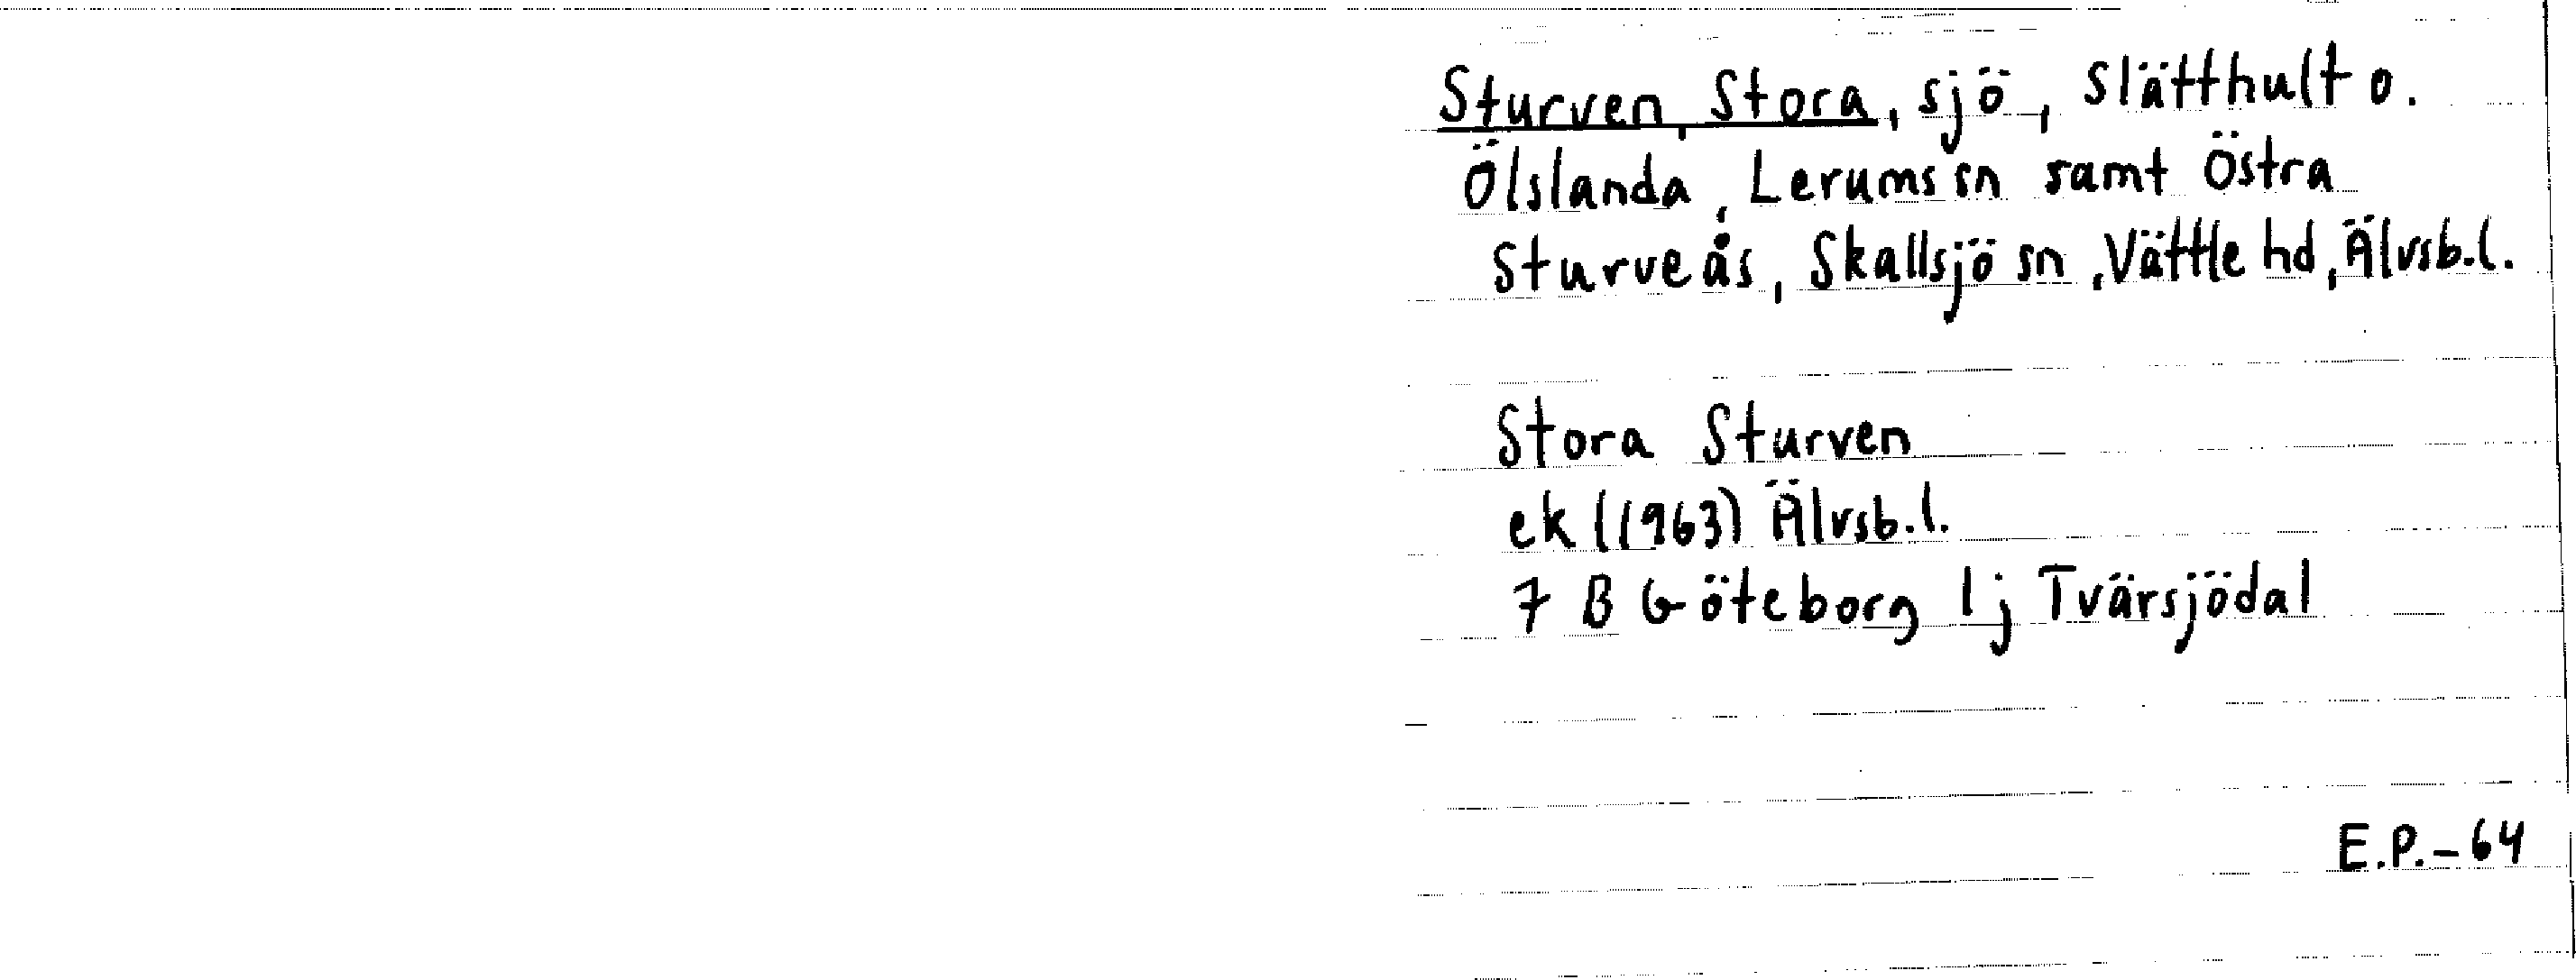 Sturven, Stora, sjö, Slätthult o.
Ölslanda, Lerums sn samt Östra
Sturveås, Skallsjö sn, Vättle hd, Älvsb.l.
Stora Sturven
ek (1963) Älvsb.l.
7 B Göteborg 1j Tvärsjödal
E.P.-64